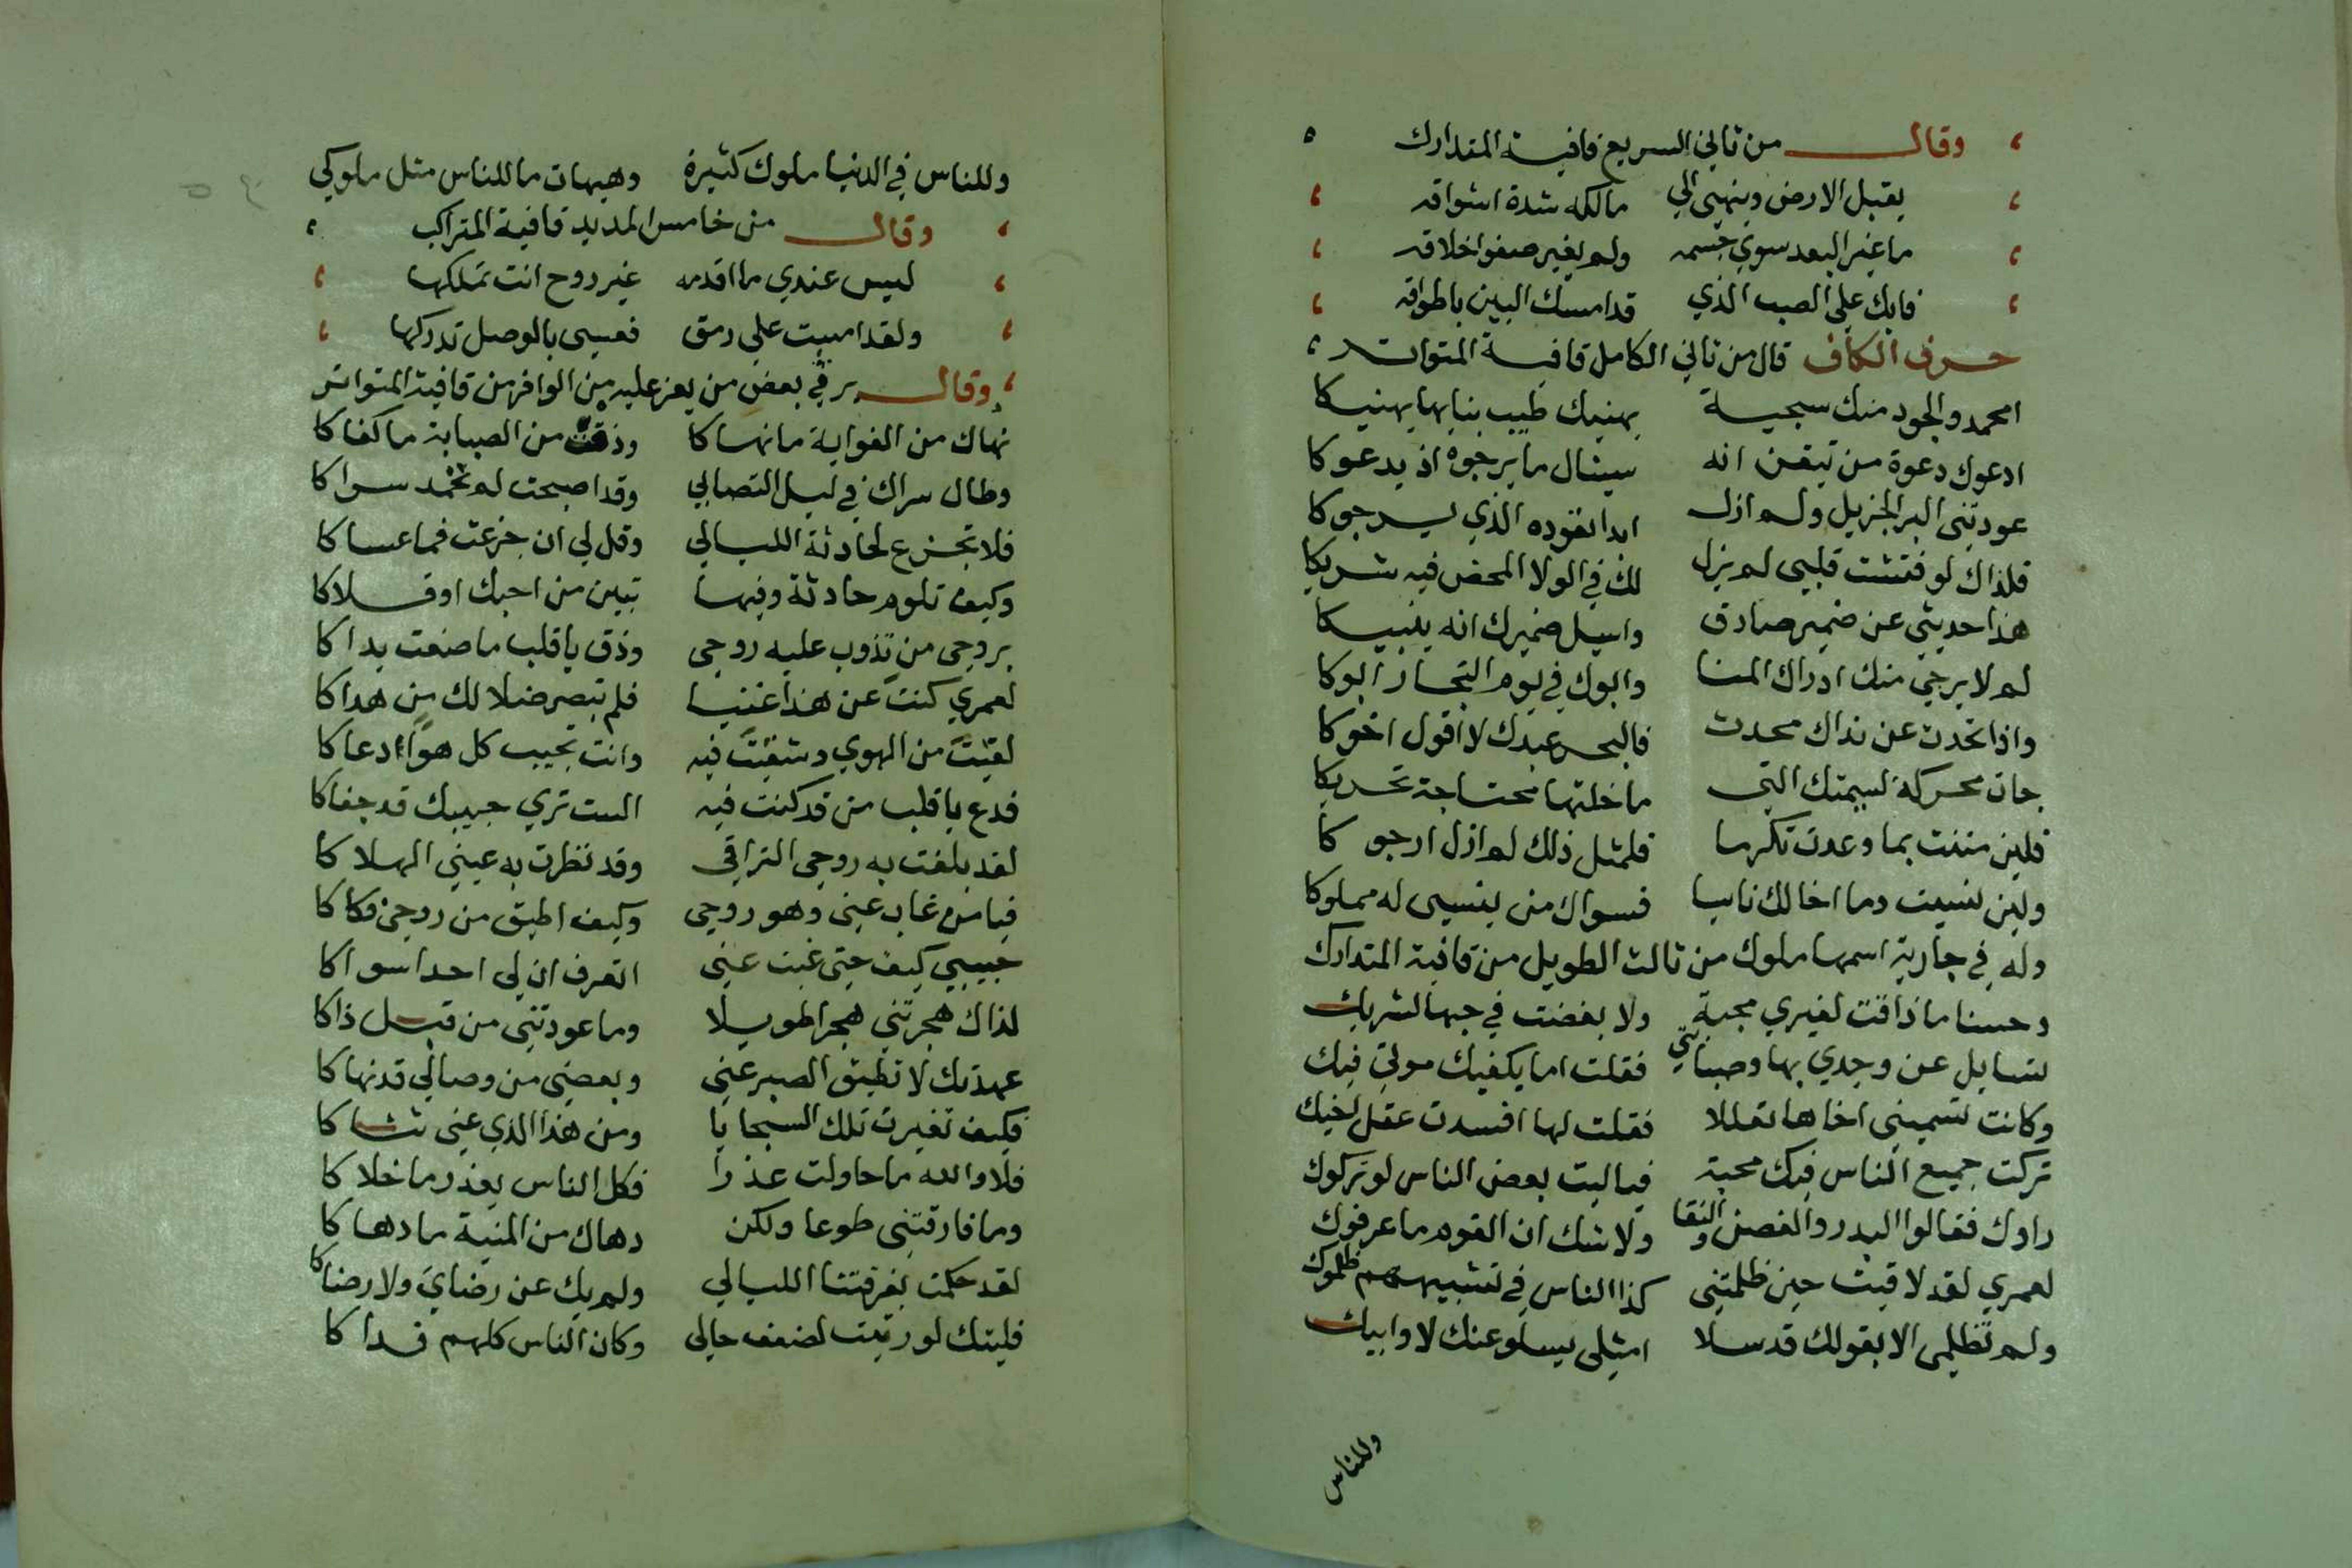 وقال من ثاني السريع قافية المتدارك
يقبل الارض وينهي الي مالكه شدة اشواقه
ما غير البعد سوي جسمه ولم يغير صفو اخلاقه
فابك علي الصب الذي قد امسك البين باطواقه
حرف الكاف قال من ثاني الكامل قافية المتواتر
امحمد والجود منك سجية يهنيك طيب ثنايها يهنيكا
ادعوك دعوة من تيقن انه سينال ما يرجوه اذ يدعوكا
عودتني البر الجزيل ولم ازل ابدا تعوده الذي يرجوكا
فلذاك لو فتشت قلبي لم يزل لك في الولا المحض فيه شريكا
هذا حديثي عن ضمير صادق واسيل ضميرك انه ينبيكا
لم لا يرجي منك ادراك المنا وابوك في يوم الفخار ابوكا
واذا تحدث عن نداك محدث فالبحر عبدك لا اقول اخوكا
جات محركة لشيمتك التي ما خلتها محتاجة تحريكا
فلين مننت بما وعدت تكرما فلمثل ذلك لم ازل ارجو كا
ولين نسيت وما اخالك ناسيا فسواك من ينسي له مملوكا
وله في جارية اسمها ملوك من ثالث الطويل من قافية المتدارك
وحسنا ما ذاقت لغيري محبة ولا بغضت في حبها لشريك
تسايل عن وجدي بها وصبابتي فقلت اما يكفيك موتي فيك
وكانت تسميني اخاها تعللا فقلت لها افسدت عقل اخيك
تركت جميع الناس فيك محبة فياليت بعض الناس لو تركوك
راوك فقالوا البدر والغصن والنقا ولا شك ان القوم ما عرفوك
لعمري لقد لاقيت حين ظلمتني كذا الناس في تشبيههم ظلموك
ولم تظلمي الا بقولك قد سلا امثلي يسلو عنك لا وابيك
وللناس
وللناس في الدنيا ملوك كثيرة وهيهات ما للناس مثل ملوكي
وقال من خامس المديد قافية المتراكب
ليس عندي ما اقدمه غير روح انت تملكها
ولقد امسيت علي رمق فعسي بالوصل تدركها
وقال يرثي بعض من يعز عليه من الوافر من قافية المتواتر
نهاك من الغواية ما نهاكا وذقت من الصبابة ما كفاكا
وطال سراك في ليل التصابي وقد اصبحت لم تحمد سراكا
فلا تجزع لحادثة الليالي وقل لي ان جزعت فما عساكا
وكيف تلوم حادثة وفيها تبين من احبك او قلاكا
بروحي من تذوب عليه روحي وذق يا قلب ما صنعت يداكا
لعمري كنت عن هذا غنيا فلم تبصر ضلالك من هداكا
لقيت من الهوي وشقيت فيه وانت تجيب كل هوا دعاكا
فدع يا قلب من قد كنت فيه الست تري حبيبك قد جفاكا
لقد بلغت به روحي التراقي وقد نظرت به عيني الهلاكا
فيا من غاب عني وهو روحي وكيف اطيق من روحي فكاكا
حبيبي كيف حتي غبت عني اتعرف ان لي احدا سواكا
لذاك هجرتني هجرا طويلا وما عودتني من قبل ذاكا
عهدتك لا تطيق الصبر عني وبعصني من وصالي قد نهاكا
فكيف تغيرت تلك السجايا ومن هذا الذي عني ثناكا
فلا والله ما حاولت عذرا فكل الناس يعذر ما خلاكا
وما فارقتني طوعا ولكن دهاك من المنية ما دهاكا
لقد حكمت بفرقتنا الليالي ولم يك عن رضاي ولا رضاكا
فليتك لو رثيت لضعف حالي وكان الناس كلهم فداكا